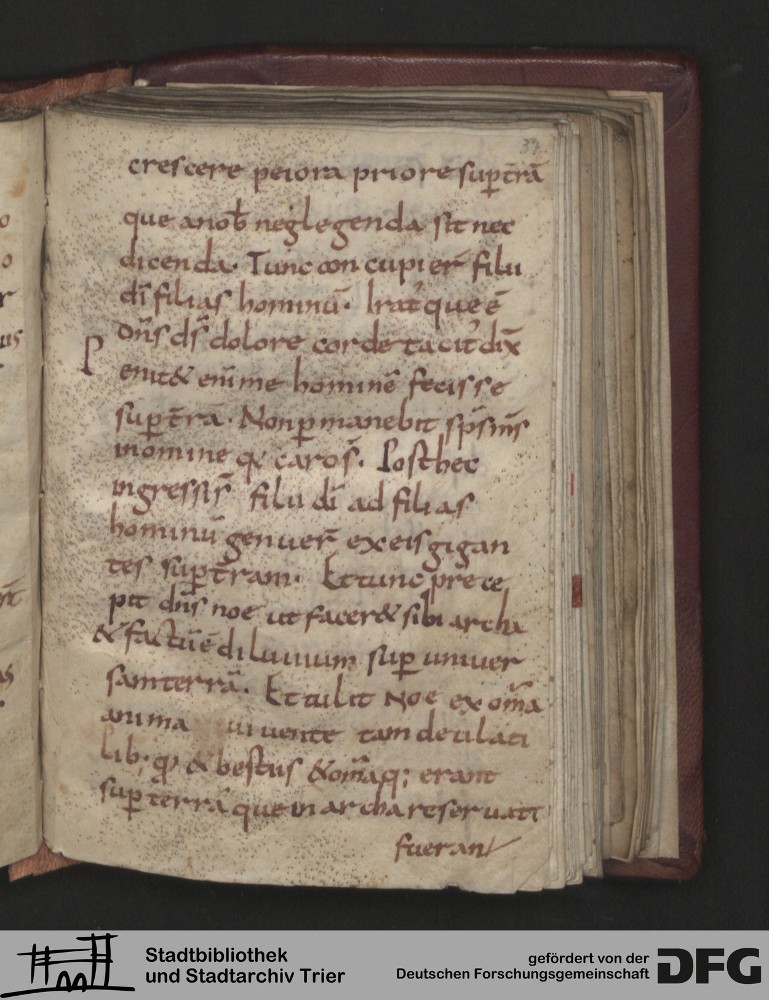 37
crescere peiora priore sup̄ tr̄ā
que anob̄ neglegenda sit nec
dicenda. Tunc concupier̄ filii
dī filias hominū. Irat᾽ que ē
dn̄s ds̄ dolore corde tacit᾽ dix̄
P enit& enī me hominē fecisse
sup̄ tr̄ā. Non p̄manebit sps̄ ms̄
in omine q̄ caro s̄. Post hec
ingressis filii dī ad filias
hominū genuer̄ ex eis gigan
tes sup̄ t̄ram. Et tunc prece
pit dn̄s noe ut facer& sibi archā
& factū ē diluuium sup̄ uniuer
sam terrā. Et tulit Noe ex om̄a
anima uiuente tam de uolati
lib; q̄ & bestiis & om̄aq; erant
sup̄ terrā que in archa reseruati
fuerant
Stadtbibliothek
und Stadtarchiv Trier
gefördert von der
Deutschen Forschungsgemeinschaft
DFG